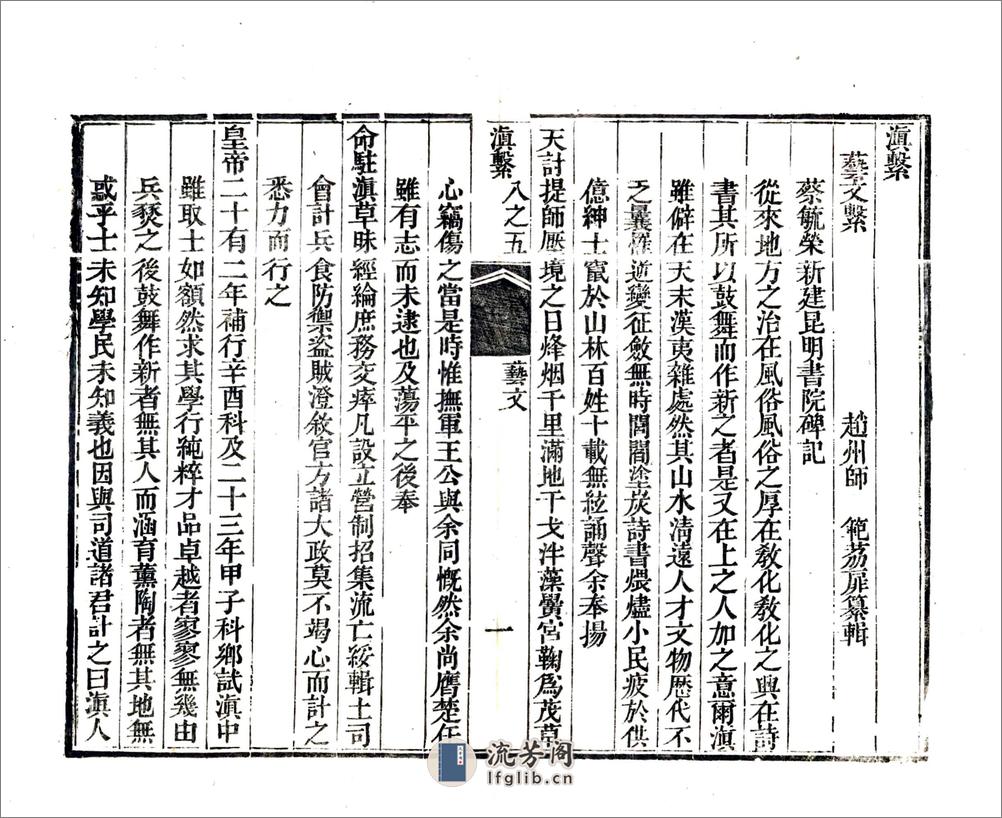 滇繫
藝文繫 趙州師 範荔扉纂輯
蔡毓榮新建昆明書院碑記
從來地方之治在風俗風俗之厚在敎化敎化之興在詩
書其所以鼓舞而作新之者是又在上之人加之意爾滇
雖僻在天末漢夷雜處然其山水淸遠人才文物歷代不
乏曩罹逆變征斂無時閭閻塗炭詩書煨燼小民疲於供
億紳士竄於山林百姓十載無絃誦聲余奉揚
天討提師壓境之日烽烟千里滿地干戈泮藻黌宮鞠爲茂草
滇繫 八之五 藝文 一
心竊傷之當是時惟撫軍王公與余同慨然余尚膺楚任
雖有志而未逮也及蕩平之後奉
命駐滇草昧經綸庶務交瘁凡設立營制招集流亡綏輯土司
會計兵食防禦盜賊澄敘官方諸大政莫不竭心而計之
悉力而行之
皇帝二十有二年補行辛酉科及二十三年甲子科鄉試滇中
雖取士如額然求其學行純粹才品卓越者寥寥無幾由
兵燹之後鼓舞作新者無其人而涵育薰陶者無其地無
惑乎士未知學民未知義也因與司道諸君計之曰滇人
流芳阁
lfglib.cn